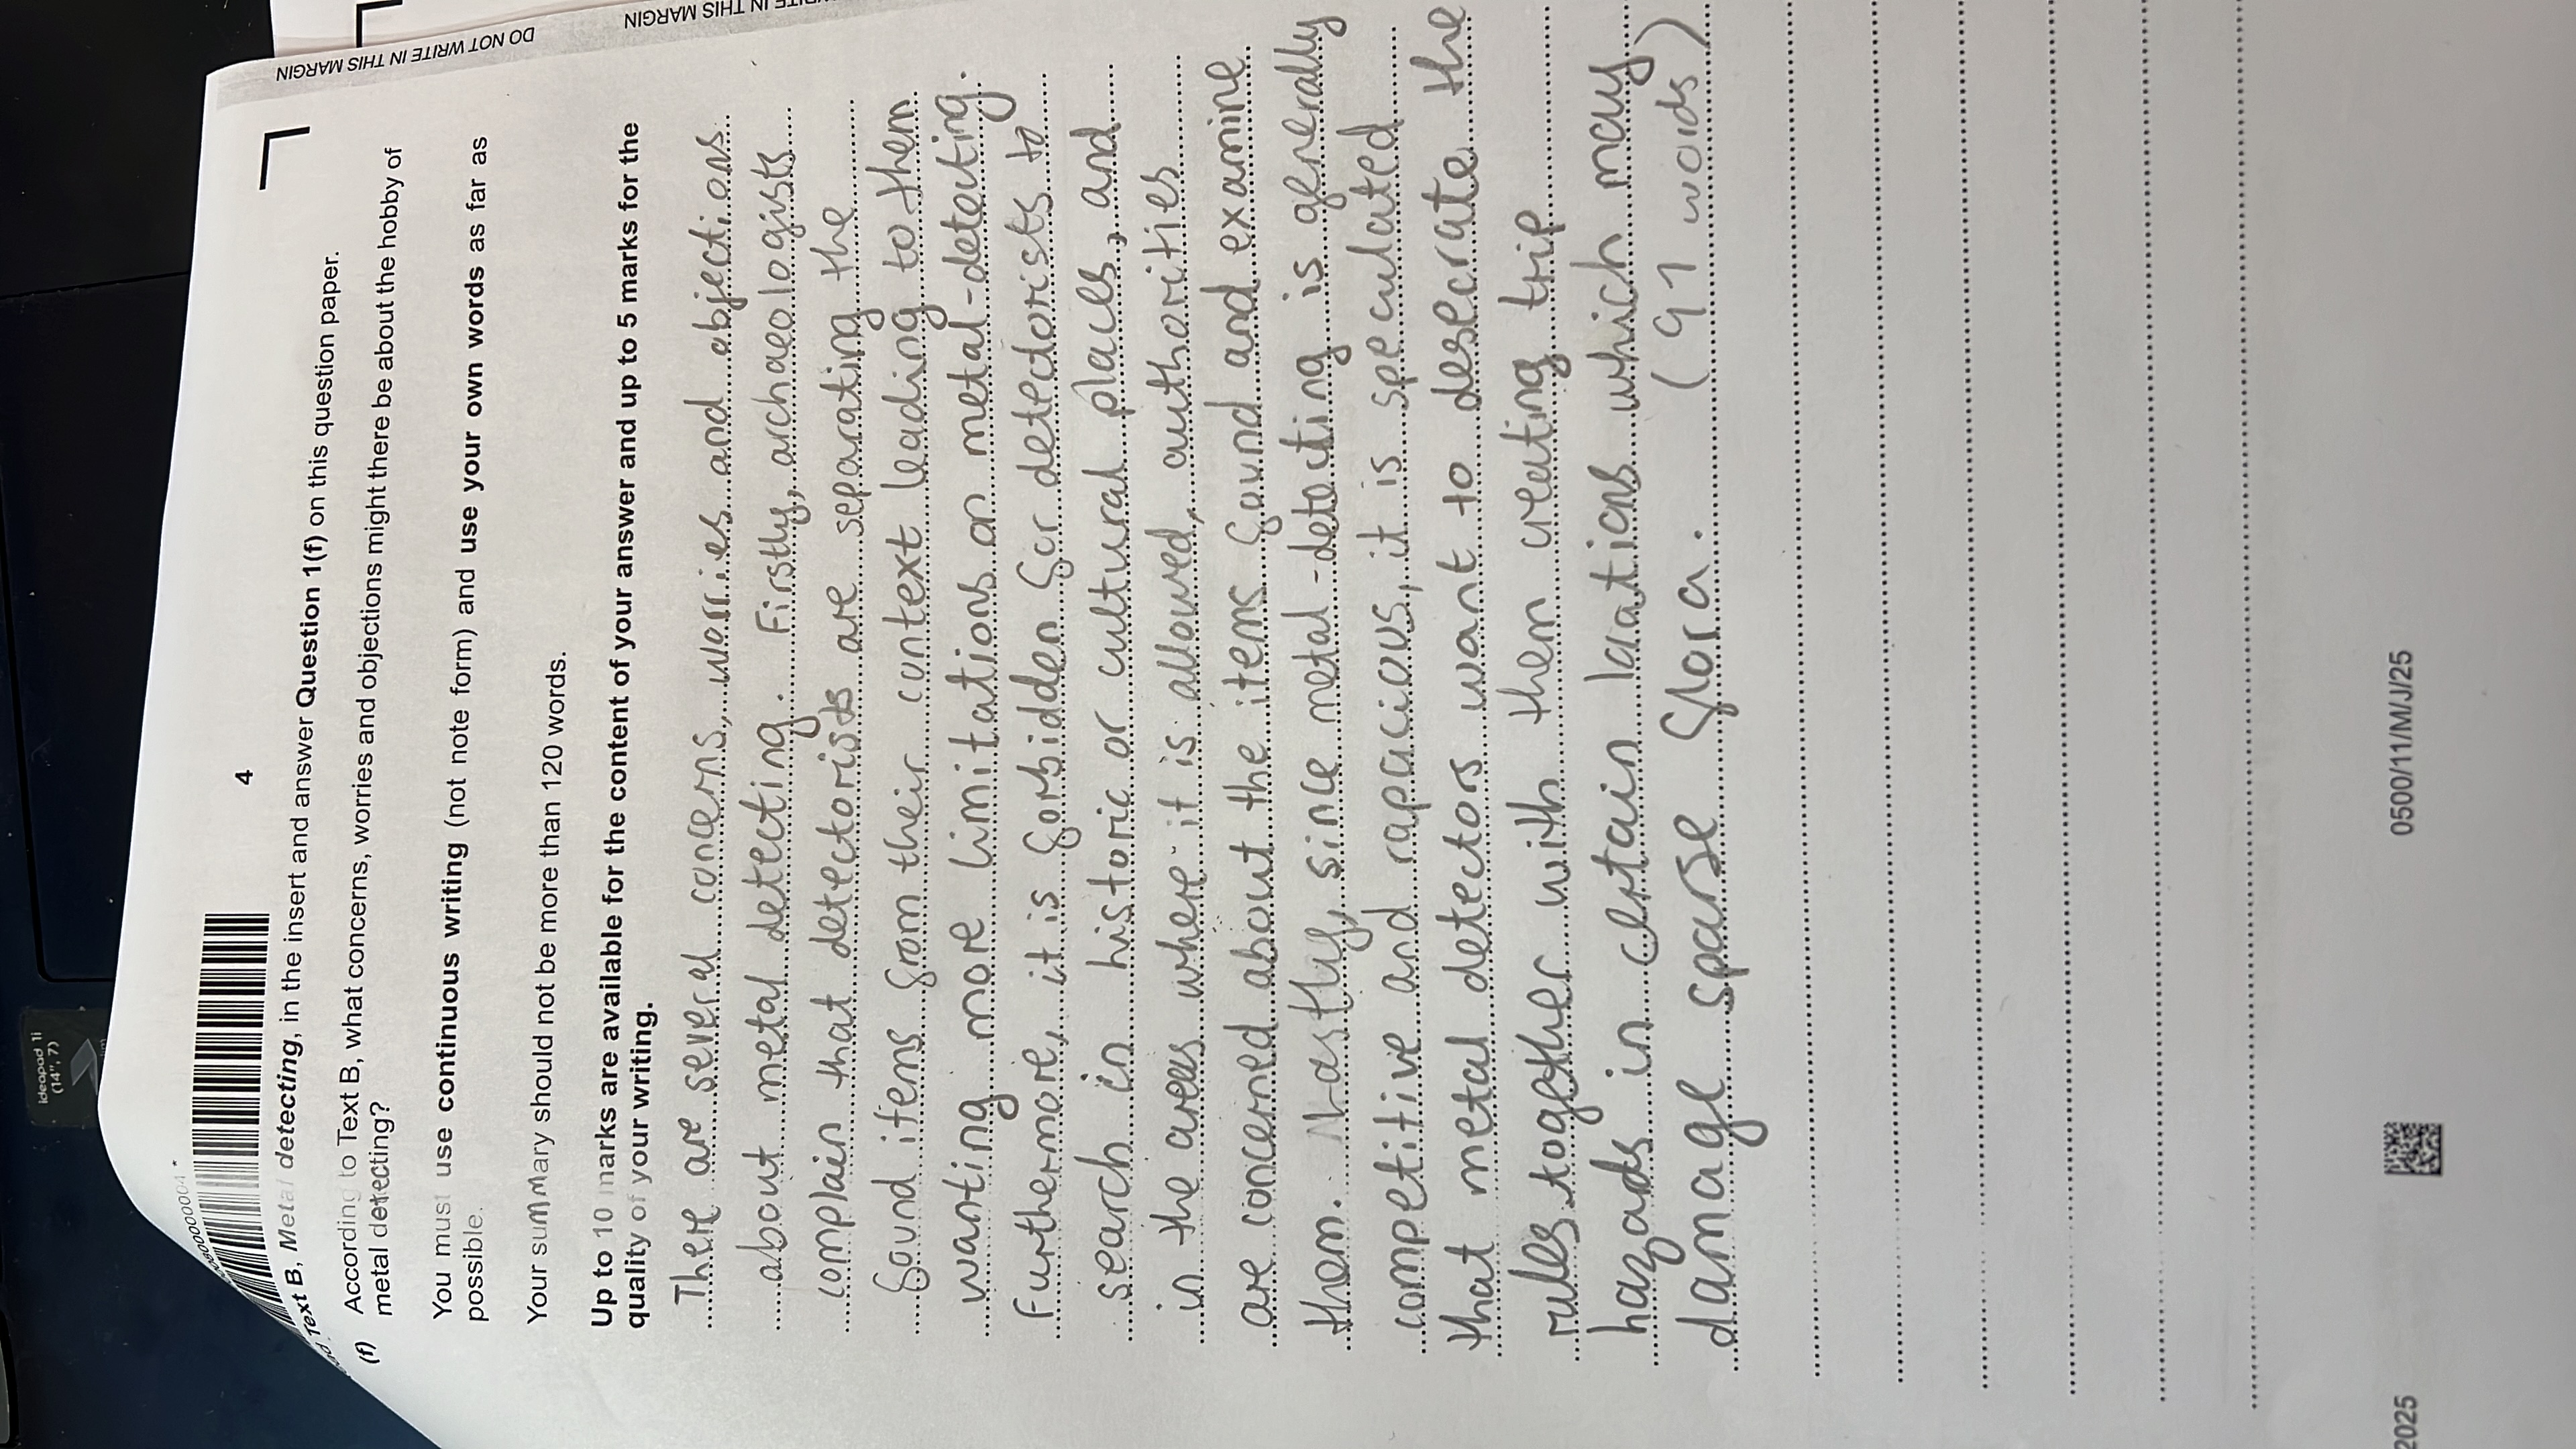 DO NOT WRITE IN THIS MARGIN
ideapad 1i
(14", 7)
4
Text B, Metal detecting, in the insert and answer Question 1(f) on this question paper.
(f) According to Text B, what concerns, worries and objections might there be about the hobby of
metal detecting?
You must use continuous writing (not note form) and use your own words as far as
possible.
Your summary should not be more than 120 words.
Up to 10 marks are available for the content of your answer and up to 5 marks for the
quality of your writing.
There are several concerns, worries and objections
about metal detecting. Firstly, archaeologists
complain that detectorists are separating the
found items from their context leading to them
wanting more limitations on metal-detecting.
Furthermore, it is forbidden for detectorists to
search in historic or cultural places, and
in the areas where it is allowed, authorities
are concerned about the items found and examine
them. Lastly, since metal-detecting is generally
competitive and rapacious, it is speculated
that metal detectors want to desecrate the
rules together with them creating trip
hazads in certain locations which may
damage sparse flora. (97 words)
2025
0500/11/M/J/25